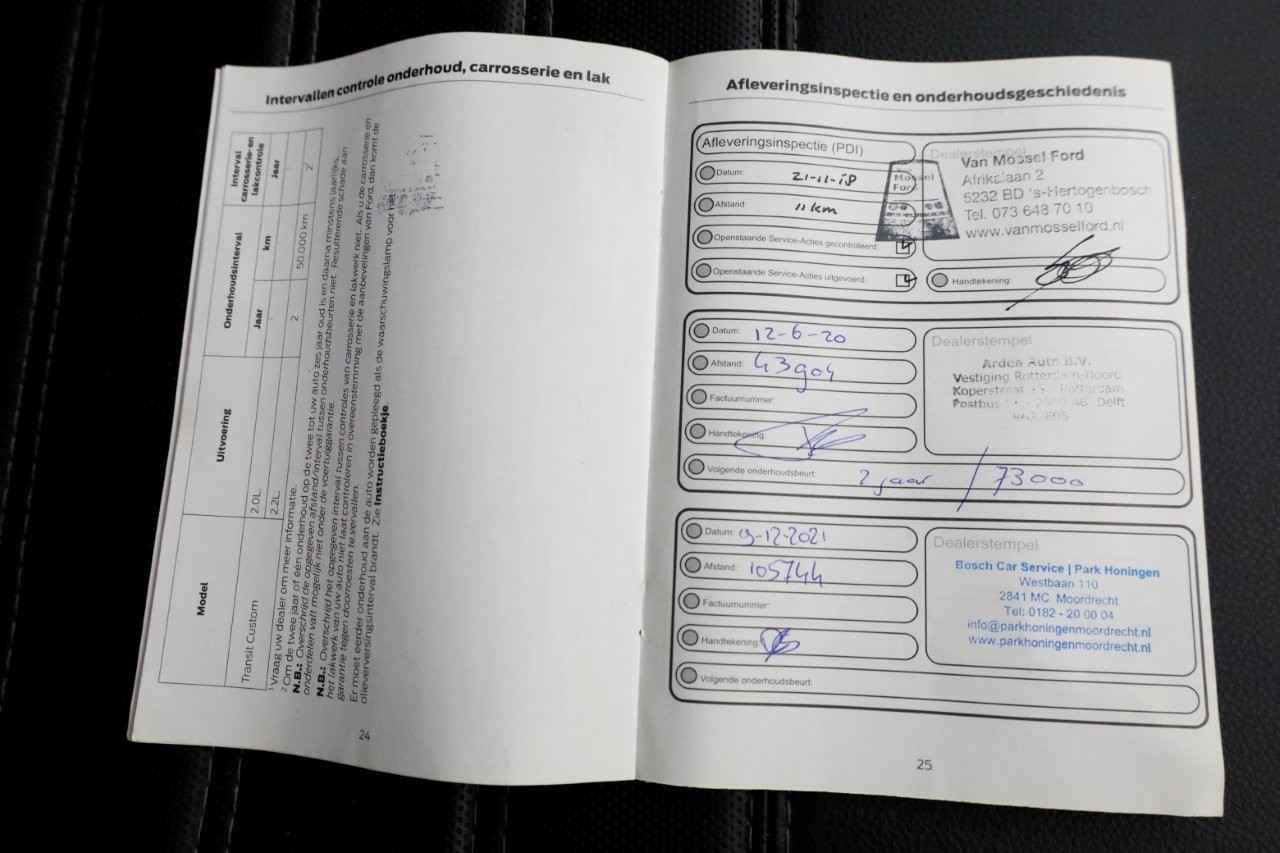 Intervallen controle onderhoud, carrosserie en lak
Model
Uitvoering
Onderhoudsinterval
Interval carrosserie-en lakcontrole
Jaar
km
Jaar
Transit Custom
2.0L
2.2L
2
50.000 km
2
1 Vraag uw dealer om meer informatie.
2 Om de twee jaar of één onderhoud op de twee tot uw auto zes jaar oud is en daarna minstens jaarlijks.
N.B.: Overschrijd de opgegeven afstand/interval tussen onderhoudsbeurten niet. Resulterende schade aan
onderdelen valt mogelijk niet onder de voertuiggarantie.
N.B.: Overschrijd het opgegeven interval tussen controles van carrosserie en lakwerk niet. Als u de carrosserie en
het lakwerk van uw auto niet laat controleren in overeenstemming met de aanbevelingen van Ford, dan komt de
garantie tegen doorroesten te vervallen.
Er moet eerder onderhoud aan de auto worden gepleegd als de waarschuwingslamp voor het
olieverversingsinterval brandt. Zie Instructieboekje.
24
Afleveringsinspectie en onderhoudsgeschiedenis
Afleveringsinspectie (PDI)
Datum: 21-11-18
Afstand: 11 km
Openstaande Service-Acties gecontroleerd:
Openstaande Service-Acties uitgevoerd:
Dealerstempel
Mossel
Ford
Van Mossel Ford
Afrikalaan 2
5232 BD 's-Hertogenbosch
Tel. 073 648 70 10
www.vanmosselford.nl
Handtekening:
Datum: 12-6-20
Afstand: 43904
Factuurnummer:
Handtekening:
Volgende onderhoudsbeurt: 2 jaar / 73000
Dealerstempel
Ardea Auto B.V.
Vestiging Rotterdam-Noord
Koperstraat Rotterdam
Postbus Delft
Datum: 9-12-2021
Afstand: 105744
Factuurnummer:
Handtekening:
Volgende onderhoudsbeurt:
Dealerstempel
Bosch Car Service | Park Honingen
Westbaan 110
2841 MC Moordrecht
Tel: 0182 - 20 00 04
info@parkhoningenmoordrecht.nl
www.parkhoningenmoordrecht.nl
25